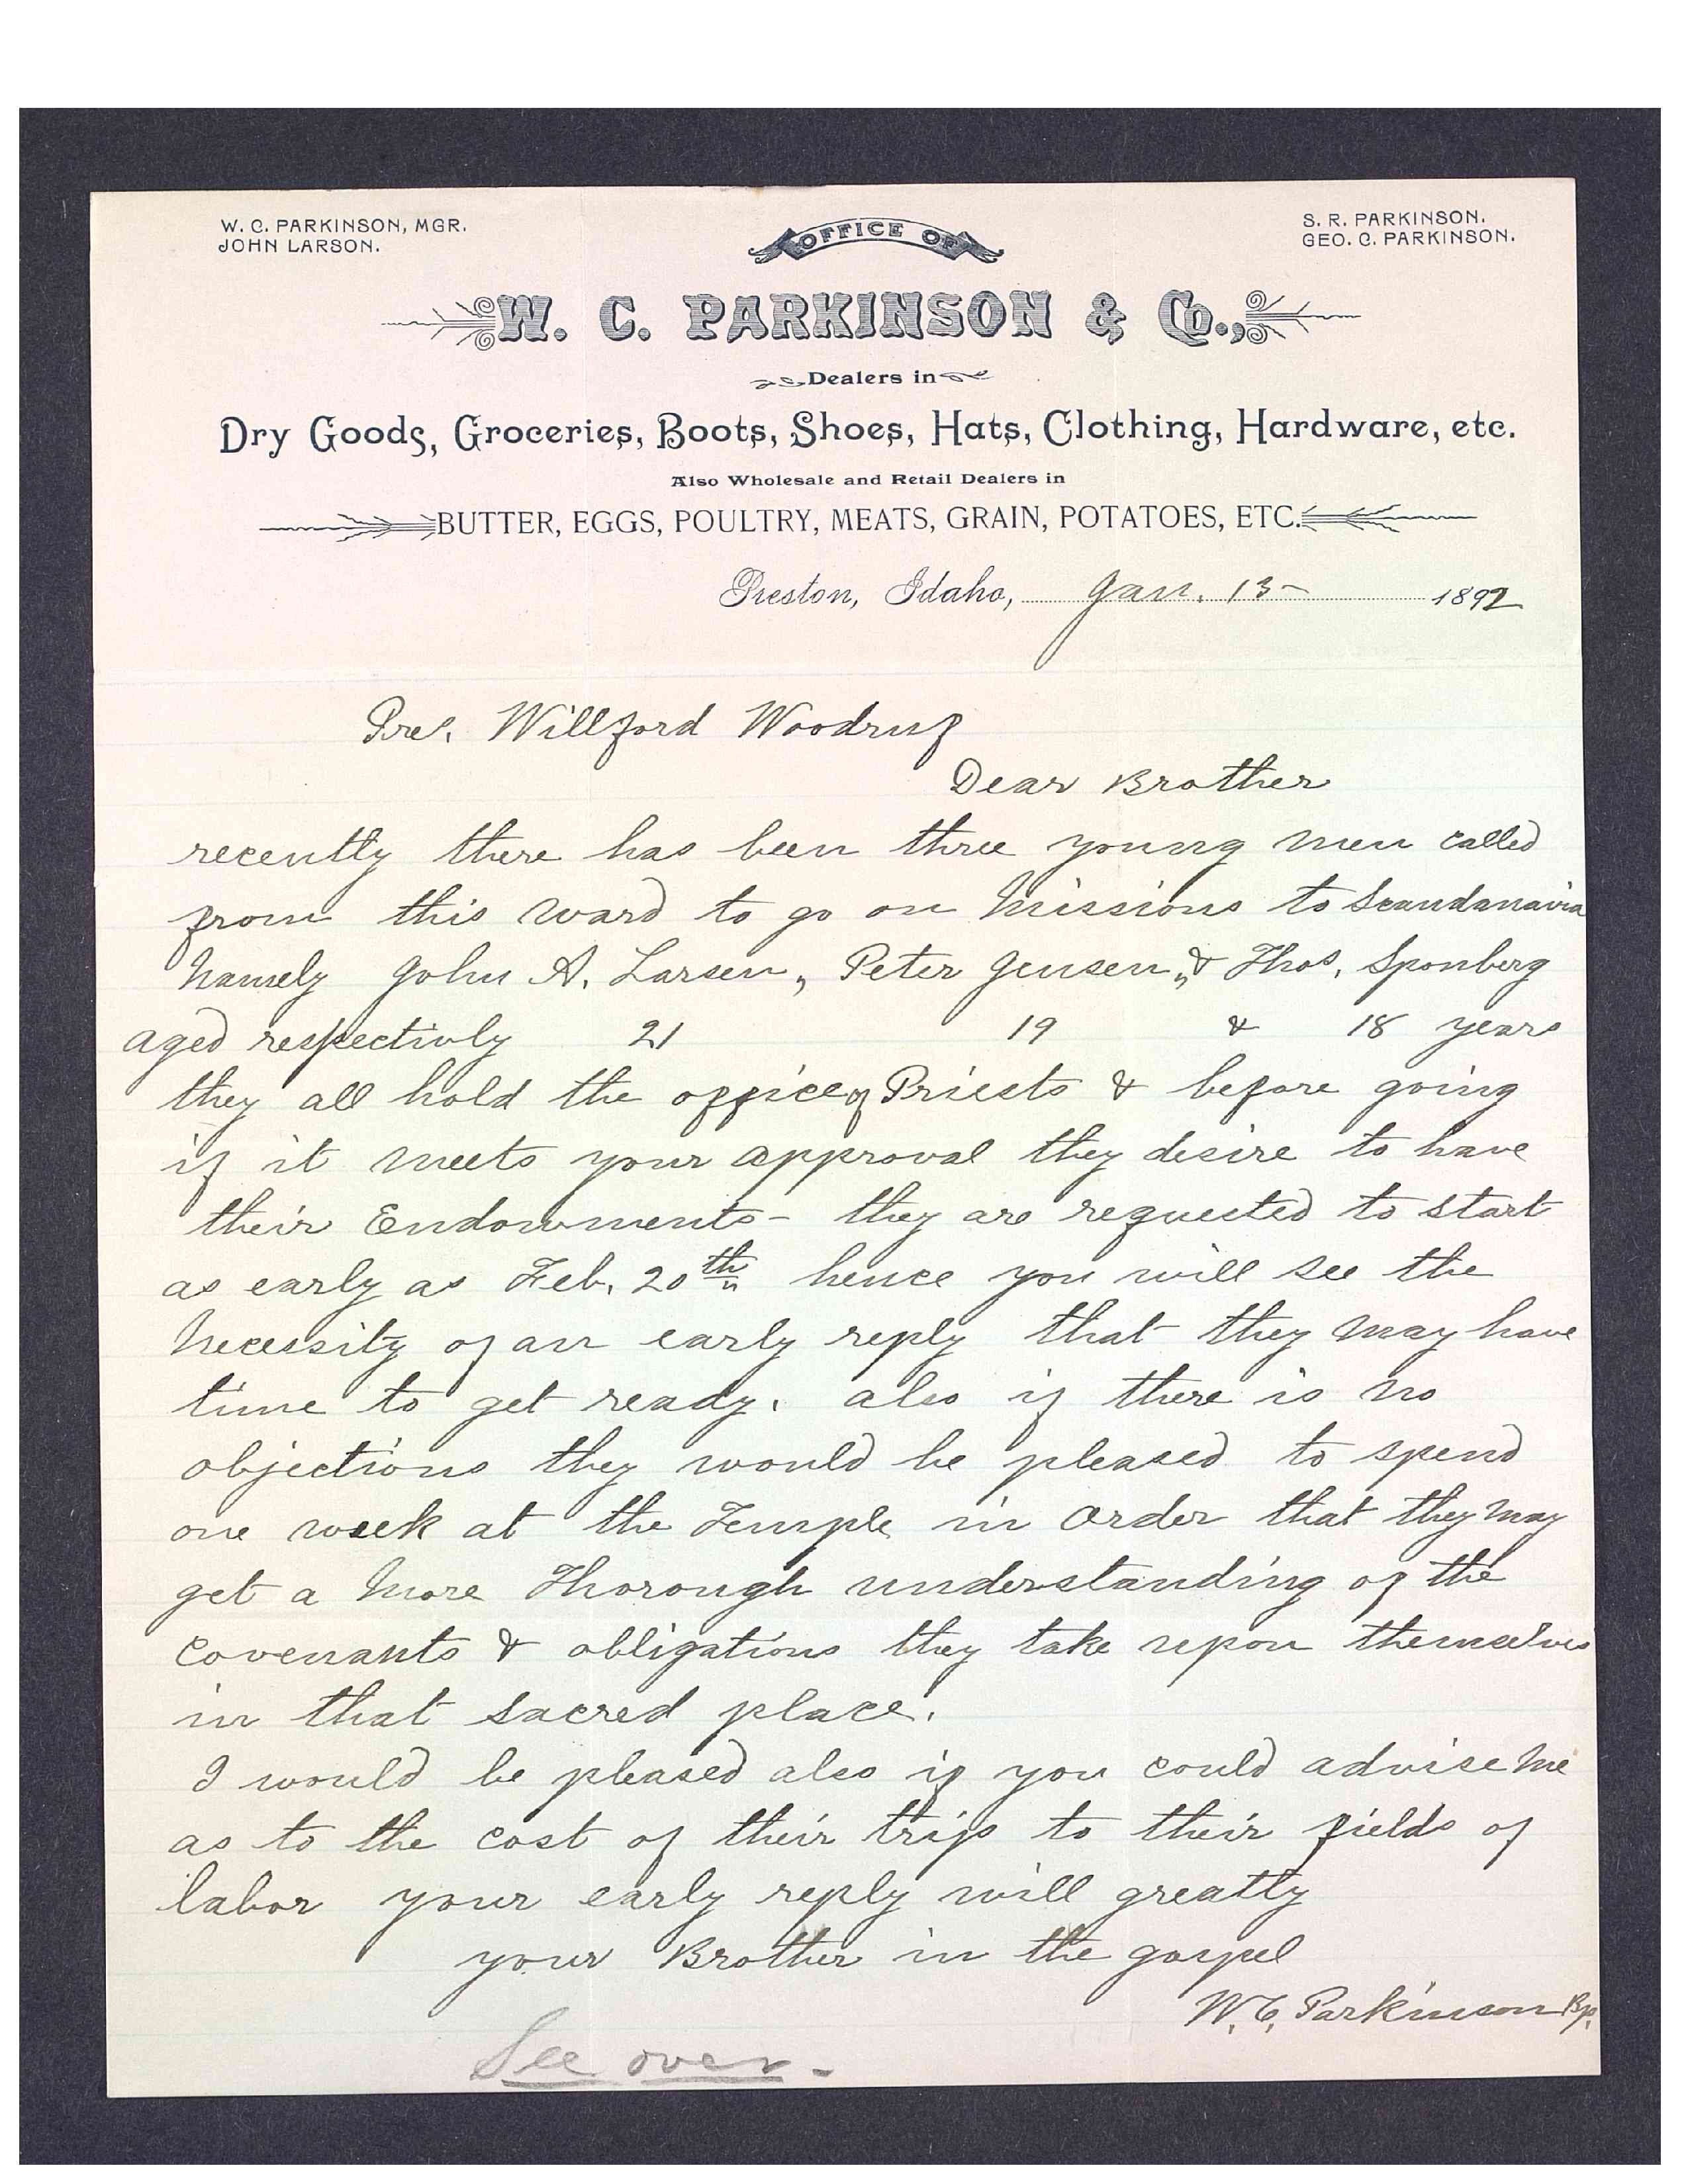 W. C. PARKINSON, MGR.
JOHN LARSON.
OFFICE OF
S. R. PARKINSON.
GEO. C. PARKINSON.
W. C. PARKINSON & Co.,
Dealers in
Dry Goods, Groceries, Boots, Shoes, Hats, Clothing, Hardware, etc.
Also Wholesale and Retail Dealers in
BUTTER, EGGS, POULTRY, MEATS, GRAIN, POTATOES, ETC.
Preston, Idaho, Jan. 13- 1892
Pres. Willford Woodruf
Dear Brother
recently there has been three young men called
from this ward to go on Missions to Scandanavia
Namely John A. Larsen, Peter Jensen, & Thos. Sponberg
aged respectivly 21 19 & 18 years
they all hold the office of Priests & before going
if it meets your approval they desire to have
their Endowments- they are requested to start
as early as Feb. 20th hence you will see the
Necessity of an early reply that they may have
time to get ready. also if there is no
objections they would be pleased to spend
one week at the Temple in order that they may
get a More Thorough understanding of the
Covenants & obligations they take upon themselves
in that sacred place.
I would be pleased also if you could advise me
as to the cost of their trips to their fields of
labor your early reply will greatly
your Brother in the gospel
W. C. Parkinson Bp.
See over-